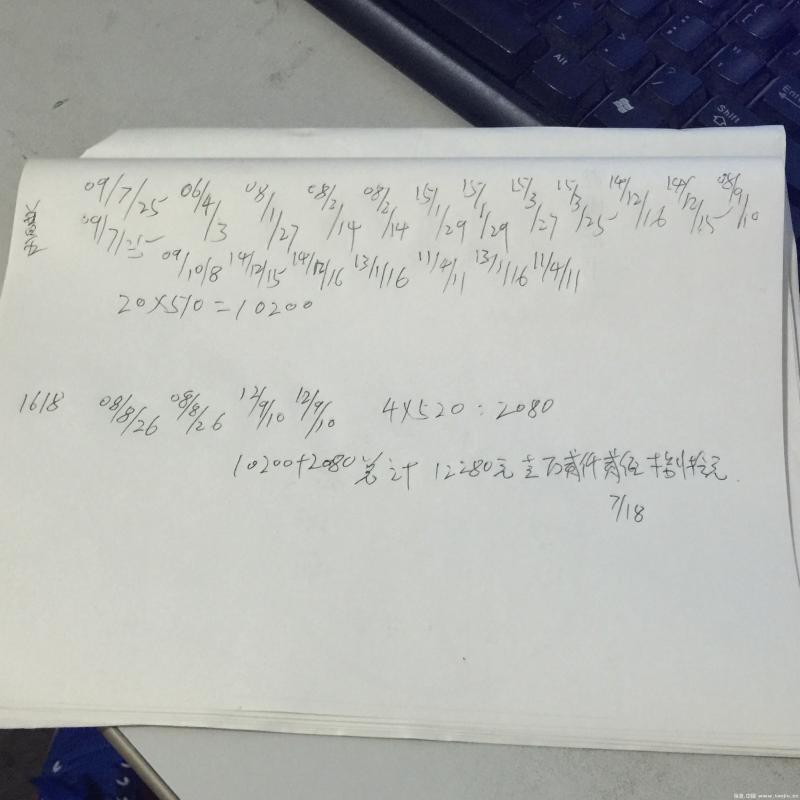 09/7/25 06/4/3 08/1/27 08/2/14 08/2/14 15/1/29 15/1/29 15/3/27 15/3/25 14/12/16 14/12/15 08/9/10
09/7/25 09/10/8 14/12/15 14/12/16 13/1/16 11/4/11 13/1/16 11/4/11
20×510=10200
1618 08/8/26 08/8/26 12/9/10 12/9/10 4×520=2080
10200+2080 总计 12280元 壹万贰仟贰佰捌拾元
7/18
Alt
Shift